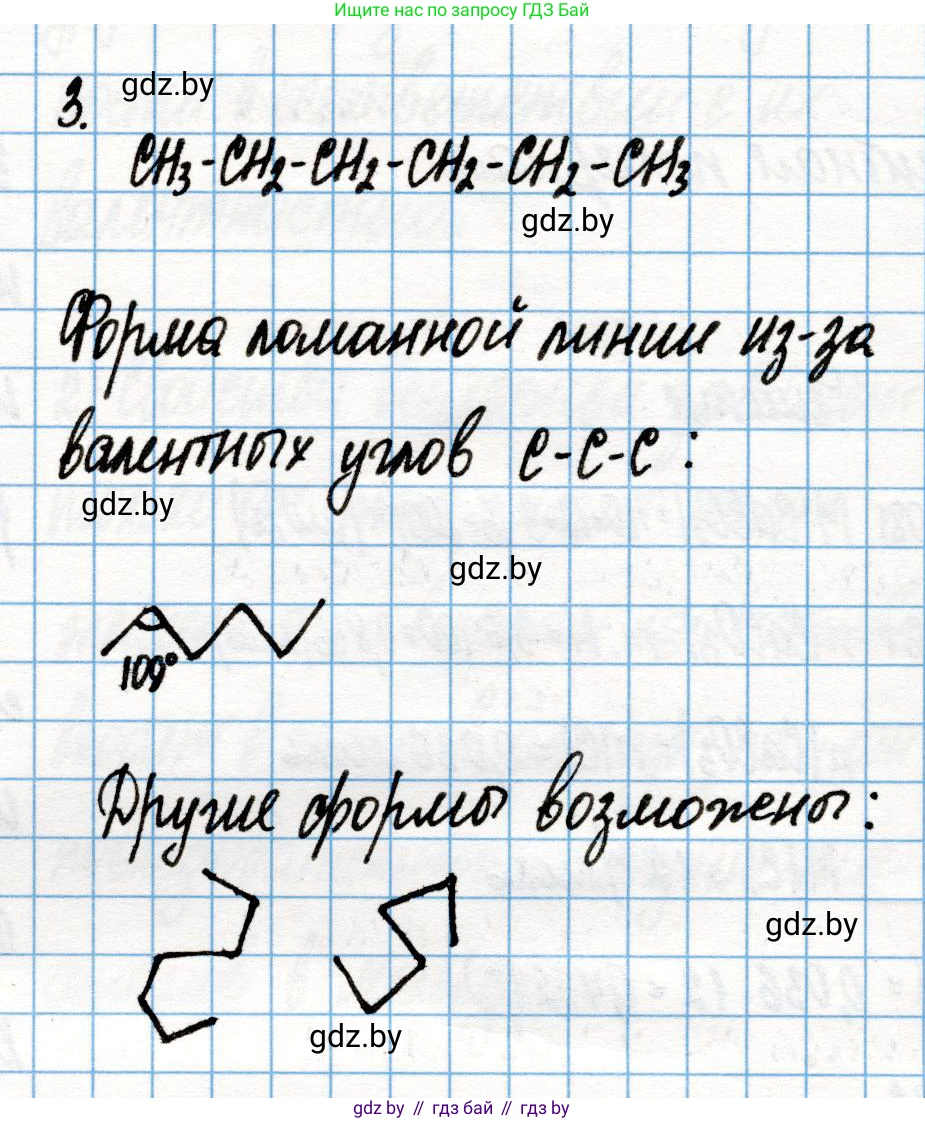 Ищите нас по запросу ГДЗ Бай
gdz.by
3.
CH3-CH2-CH2-CH2-CH2-CH3
gdz.by
Форма ломанной линии из-за
валентных углов C-C-C:
gdz.by
gdz.by
109°
Другие формы возможены:
gdz.by
gdz.by
gdz.by // гдз бай // гдз.by